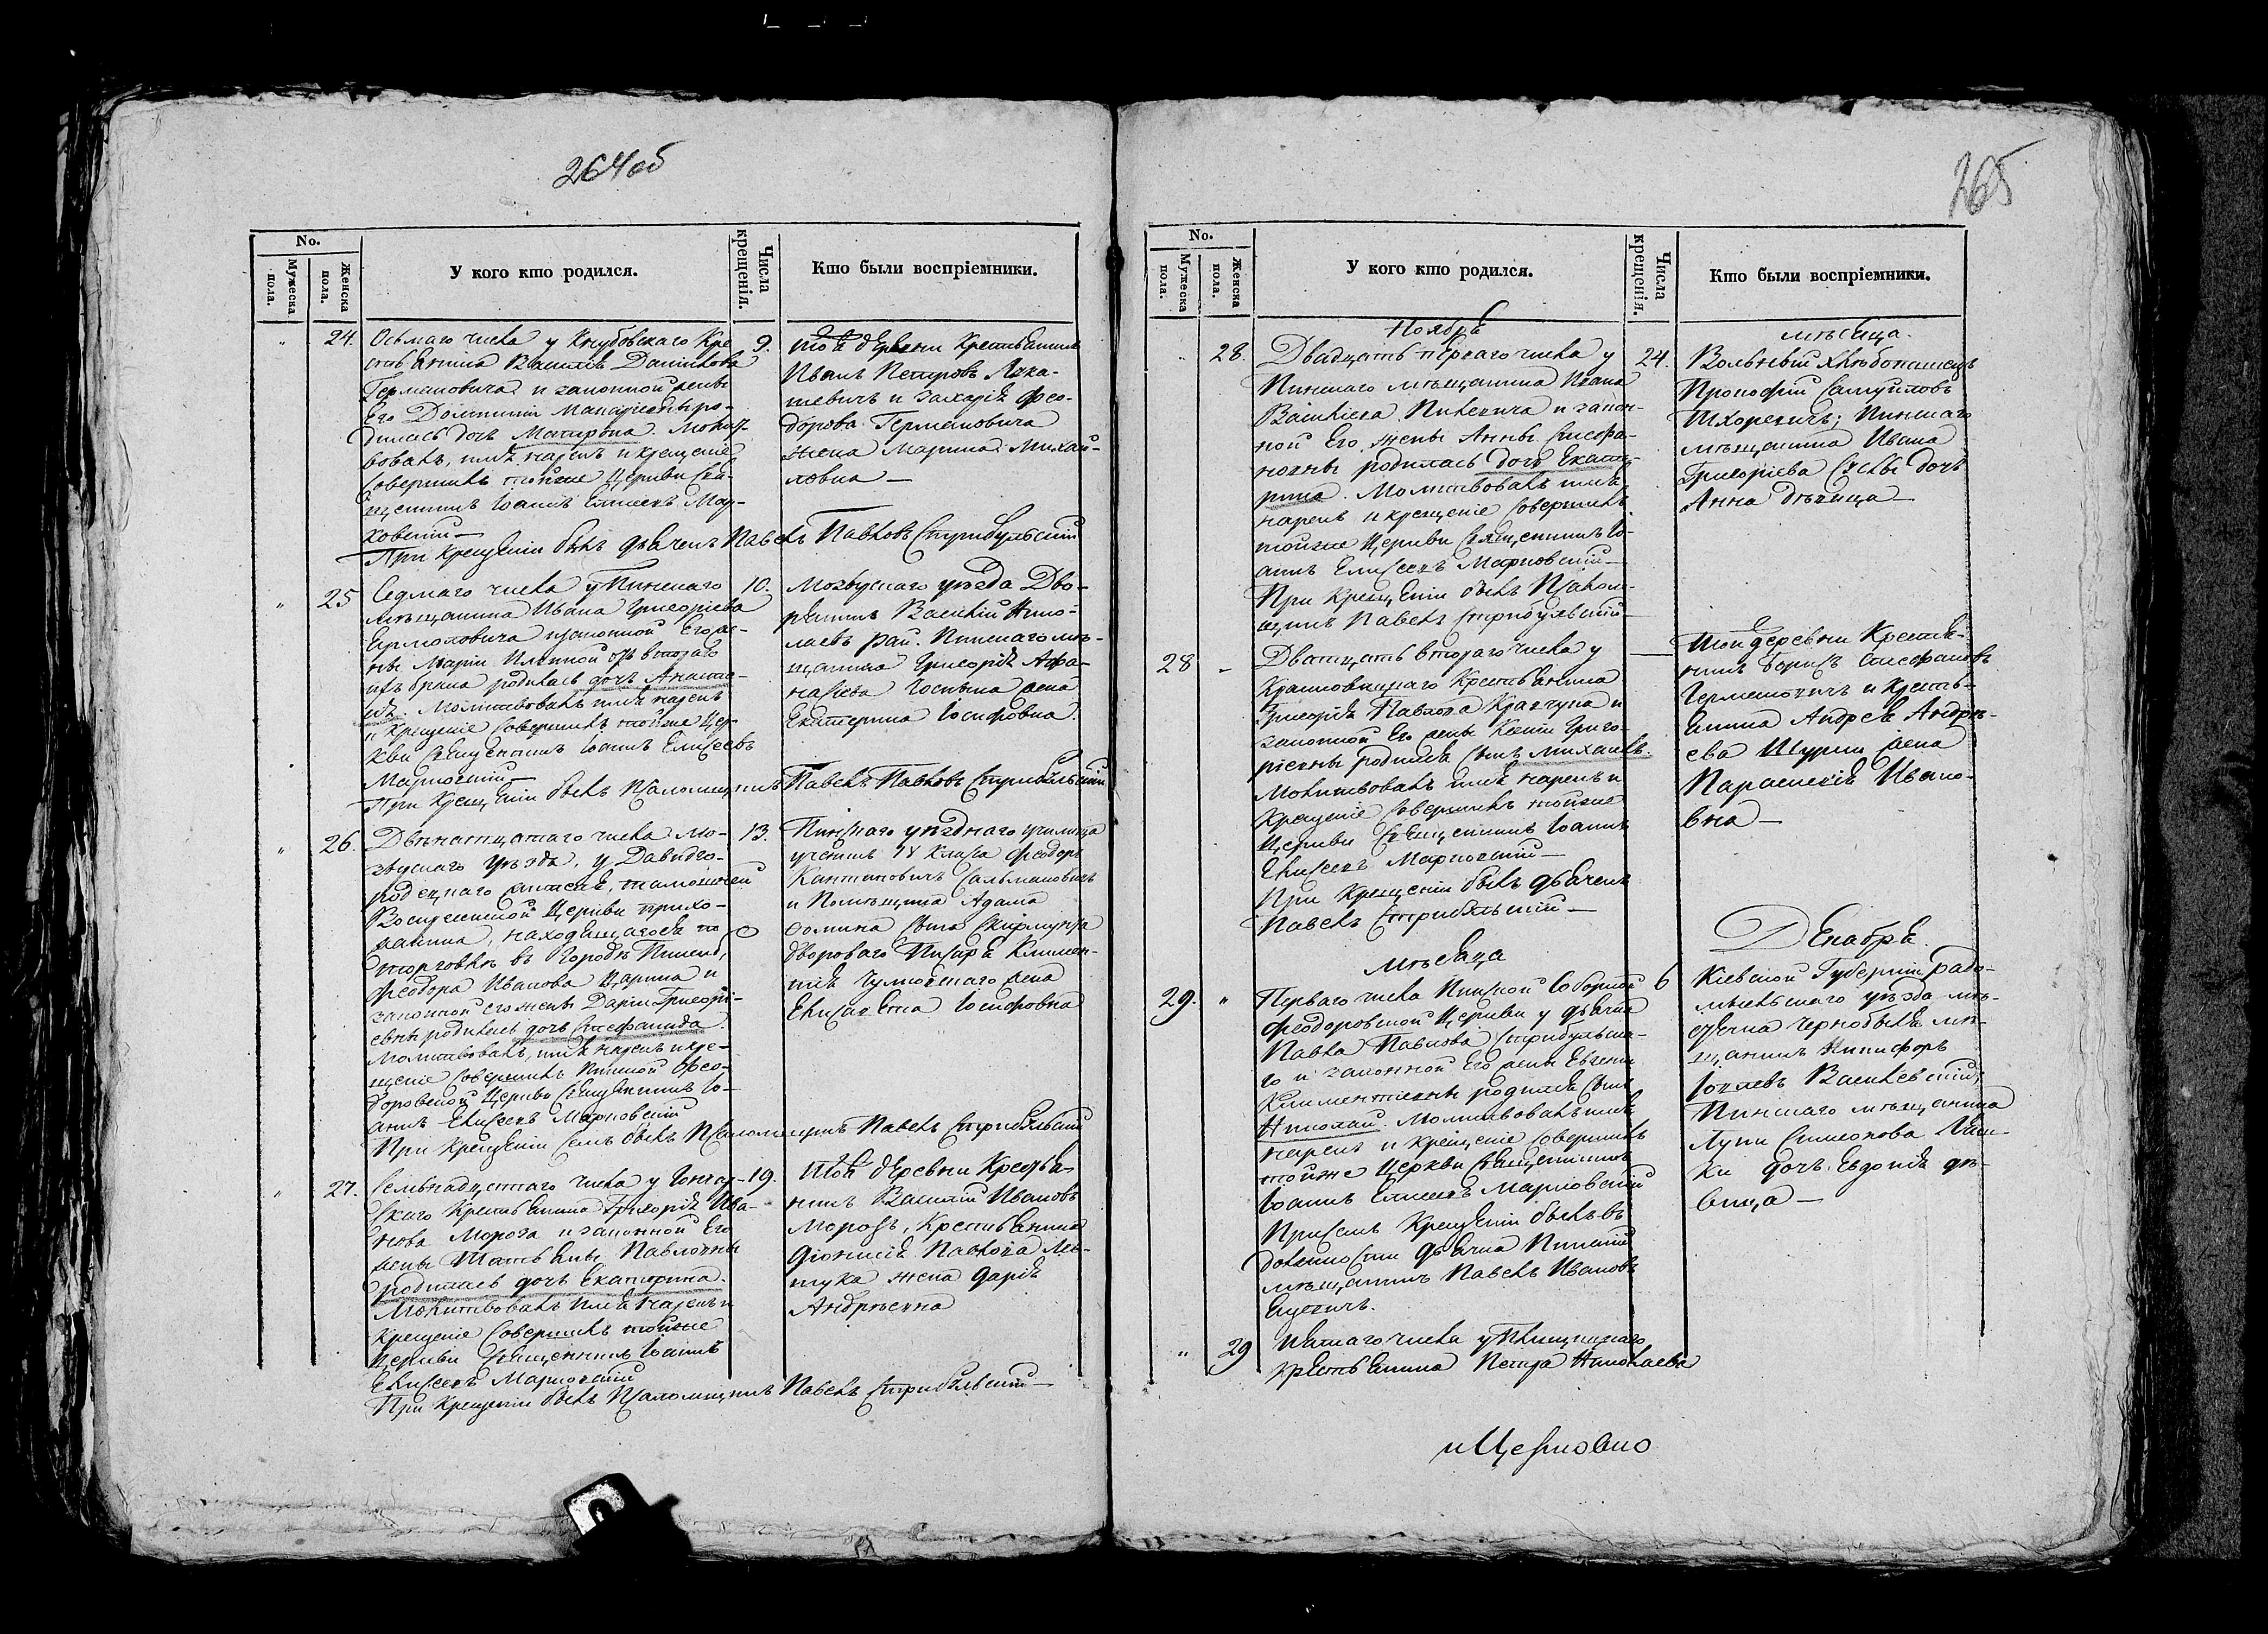 264 об
No.
Мужеска пола.
Женска пола.
У кого кто родился.
Числа крещенія.
Кто были воспріемники.
24.
Осьмаго числа у Кнубовскаго Кре
стьянина Василія Данилова
Германовича и законной жены
Его Домникіи Макарьевны ро-
дилась дочь Матрона. Молит-
вовалъ, имя нарекъ и крещеніе
Совершилъ тойже Церкви Свя-
щенникъ Іоаннъ Елисеевъ Мар-
ковскій
При крещеніи былъ дьячекъ Павелъ Павловъ Стрибульскій
9.
Той деревни Крестьянинъ
Иванъ Петровъ Лука-
шевичъ и Захарія Фео-
дорова Германовича
жена Марина Михай-
ловна
25
Седмаго числа у Пинскаго
мѣщанина Ивана Григоріева
Ермоловича и законной Его же-
ны Маріи Ильиной отъ втораго
ихъ брака родилась дочь Анаста-
сія. Молитвовалъ имя нарекъ
и Крещеніе Совершилъ тойже Цер-
кви Священникъ Іоаннъ Елисеевъ
Марковскій
При Крещеніи былъ Псаломщикъ Павелъ Павловъ Стрибульскій
10.
Мозырскаго уѣзда Дво-
рянинъ Василій Нико-
лаевъ Рай. Пинскаго мѣ-
щанина Григорія Афа-
насіева жена
Екатерина Іосифовна.
26.
Двѣнатцатаго числа Мо-
зырскаго уѣзда, у Давидго-
родецкаго жителя, тамошней
Воскресенской Церкви прихо-
жанина, находящагося по
торговлѣ въ Городѣ Пинскѣ,
Феодора Иванова Царика и
законной его жены Даріи Григорі-
евны родилась дочь Стефанида.
Молитвовалъ, имя нарекъ и кре-
щеніе Совершилъ Пинской Фео-
доровской Церкви Священникъ Іо-
аннъ Елисеевъ Марковскій
При Крещеніи семъ былъ Псаломщикъ Павелъ Стрибульскій
13.
Пинскаго уѣзднаго училища
учитель 14 Класса Феодоръ
Сальмановичъ
и Помѣщика Адама
Фомина Сына Скирмунта
дворового Писаря Климен-
тія жена
Елисавета Іосифовна
27.
Семьнадцатаго числа у
скаго Крестьянина Григорія Ива-
нова Мороза и законной Его
жены Татьяны Павловны
родилась дочь Екатерина.
Молитвовалъ имя нарекъ и
Крещеніе Совершилъ тойже
Церкви Священникъ Іоаннъ
Елисеевъ Марковскій
При Крещеніи былъ Псаломщикъ Павелъ Стрибульскій
19.
Той деревни Крестья-
нинъ Василій Ивановъ
Морозъ, Крестьянина
Діонисія Павлова Ле-
щука жена Дарія
Андрѣевна
265
No.
Мужеска пола.
Женска пола.
У кого кто родился.
Числа крещенія.
Кто были воспріемники.
Ноября
мѣсяца.
28.
Двадцать перваго числа у
Пинскаго мѣщанина Ивана
Василіева Пилевича и закон-
ной Его жены Анны Стефа-
новны родилась дочь Екате-
рина. Молитвовалъ имя
нарекъ и крещеніе Совершилъ
тойже Церкви Священникъ Іо-
аннъ Елисеевъ Марковскій
При Крещеніи былъ Псалом-
щикъ Павелъ Стрибульскій
24.
Вольный хлѣбопашецъ
Прокофій Самуиловъ
Шкоревичъ; Пинскаго
мѣщанина Ивана
Григоріева дочь
Анна дѣвица
28
Дватцать втораго числа у
Крестьянина
Григорія Павлова Кравчука и
законной Его жены Ксеніи Григо-
ріевны родился Сынъ Михаилъ.
Молитвовалъ имя нарекъ и
Крещеніе Совершилъ тойже
Церкви Священникъ Іоаннъ
Елисеевъ Марковскій
При Крещеніи былъ дьячекъ
Павелъ Стрибульскій
Той деревни Крестья-
нинъ Борисъ Стефановъ
Германовичъ и Кресть-
янина Андрея Андрѣ-
ева Шурки жена
Параскевія Ивано-
вна
мѣсяца
Декабря.
29.
Перваго числа Пинской Соборной
Феодоровской Церкви у дьячка
Павла Павлова Стрибульска-
го и законной Его жены Евгеніи
Климентіевны родился Сынъ
Николай. Молитвовалъ имя
нарекъ и крещеніе Совершилъ
тойже Церкви Священникъ
Іоаннъ Елисеевъ Марковскій
При семъ Крещеніи былъ въ
должности дьячка Пинскій
мѣщанинъ Павелъ Ивановъ
6
Кіевской Губерніи Радо-
мысльскаго уѣзда мѣ-
стечка Чернобыля мѣ-
щанинъ Никифоръ
Василевскій;
Пинскаго мѣщанина
Луки Симеонова
дочь Евдокія дѣ-
вица
29
Пятаго числа у
крестьянина Петра Николаева
и Церковно